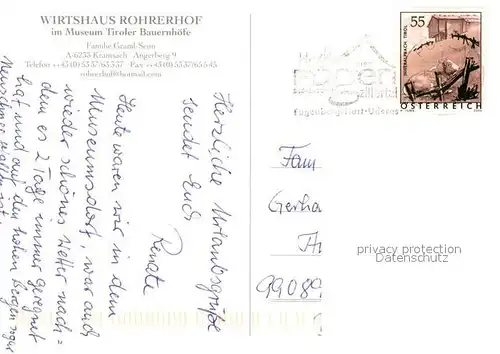 WIRTSHAUS ROHRERHOF
im Museum Tiroler Bauernhöfe
Familie Graml-Senn
A-6233 Kramsach Angerberg 9
Telefon ++43(0)5337/65537 Fax ++43(0)5337/65545
rohrerhof@hotmail.com
Herzliche Urlaubsgrüße
sendet Euch
Renate
Heute waren wir in dem
Museumsdorf, war auch
wieder schönes Wetter nach=
dem es 2 Tage immer geregnet
hat und auf den hohen Bergen sogar
55
ALPBACH, TIROL
ÖSTERREICH
Fam
Gerha
99089
privacy protection
Datenschutz